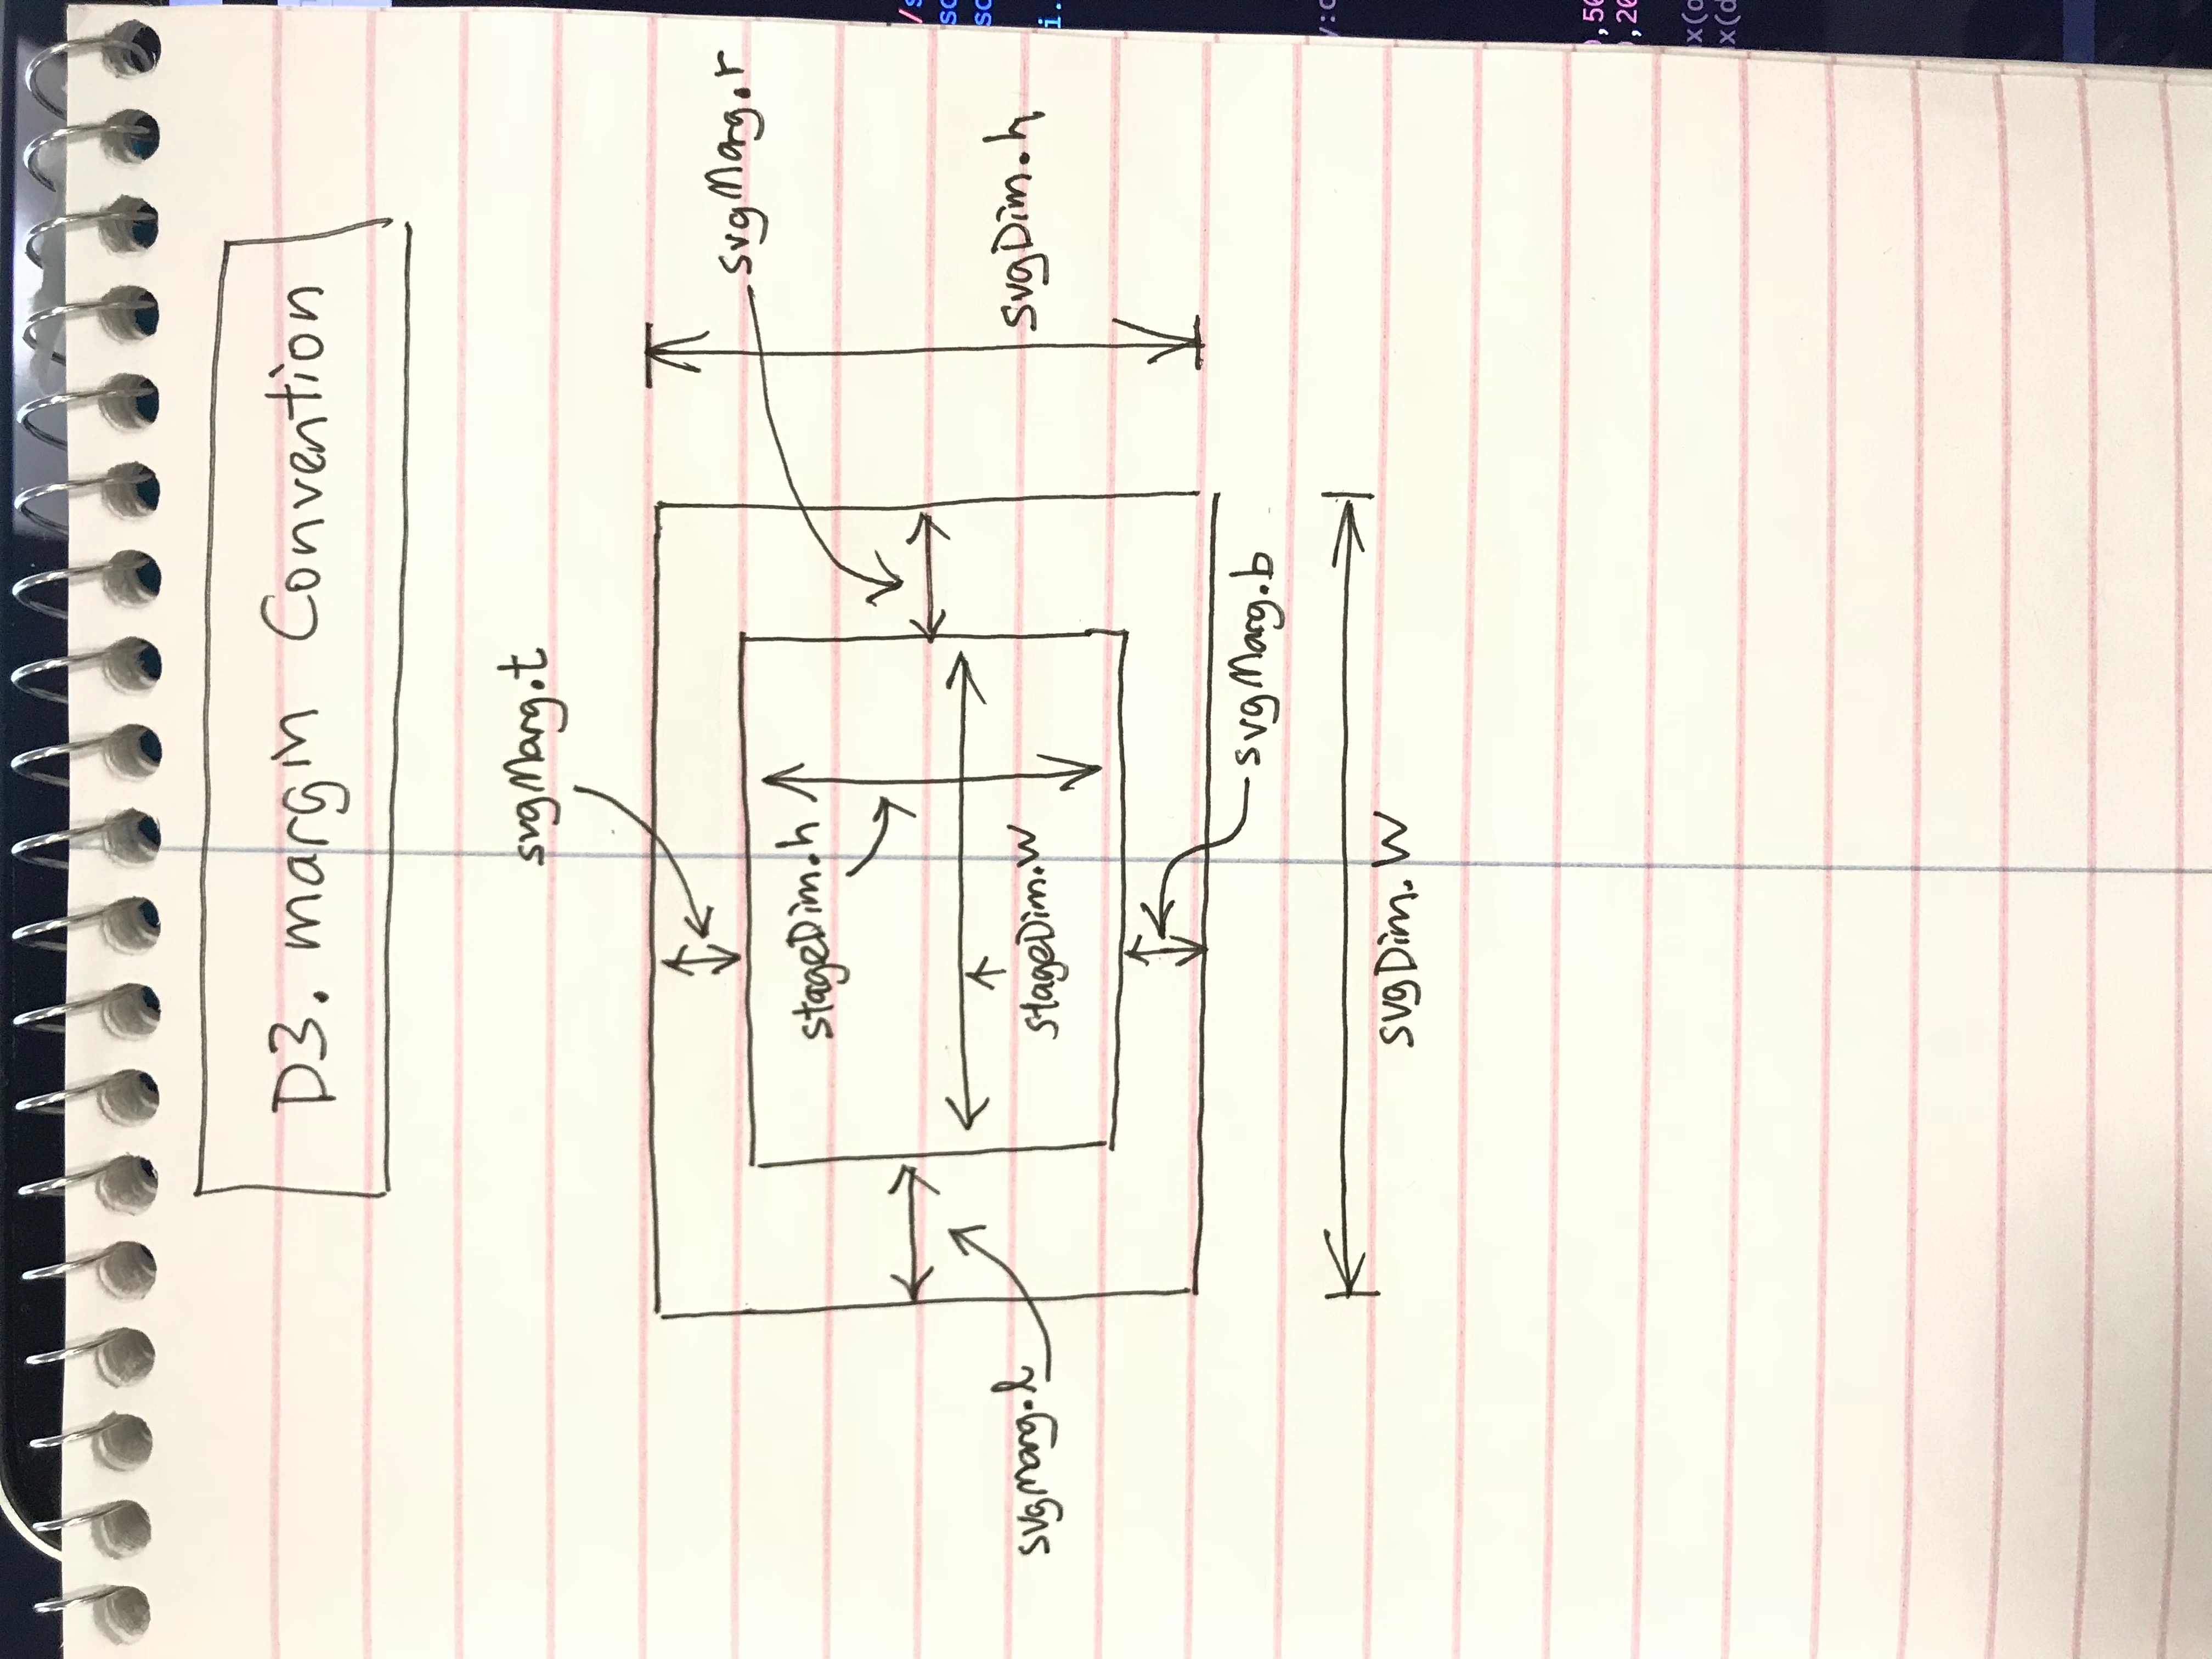 D3. margin Convention
svgMarg.t
svgMarg.r
stageDim.h
svgMarg.l
stageDim.w
svgDim.h
svgMarg.b
svgDim.w
/s
sc
sc
i.
y:c
,50
,20
x(d
x(d